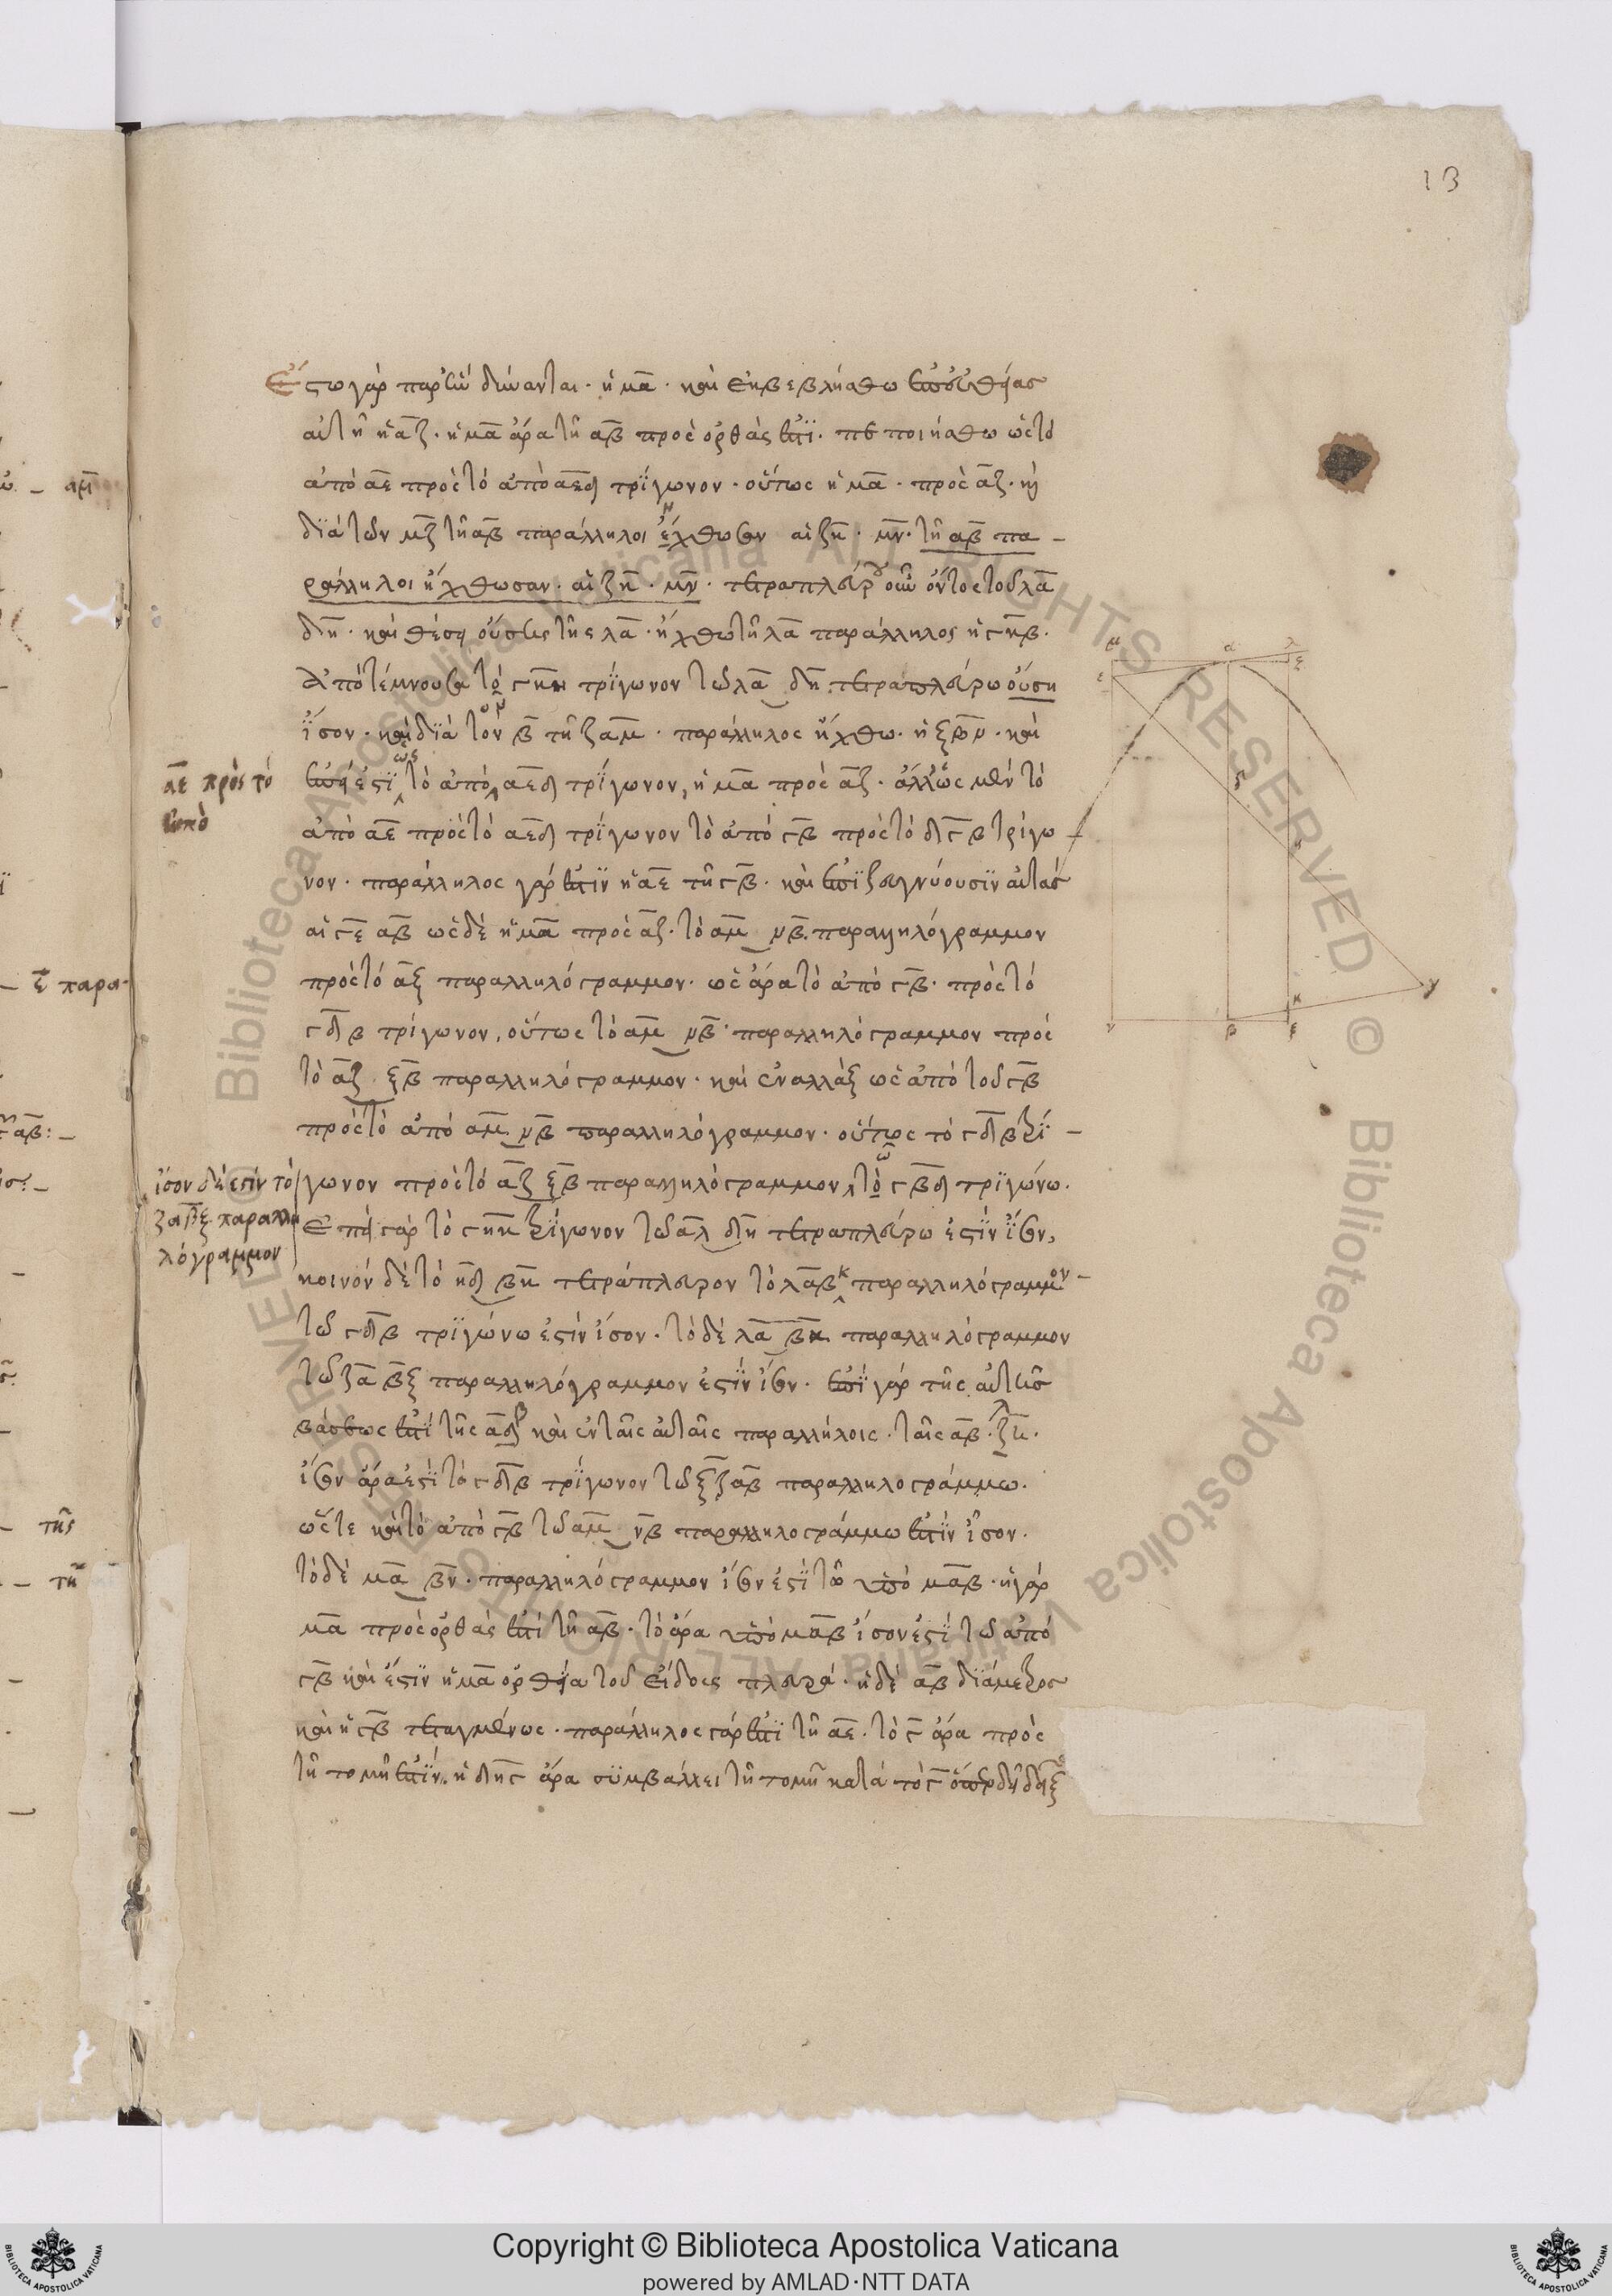 13
Ἔστω γὰρ παρ' ἣν δύνανται · ἡ μα · καὶ ἐκβεβλήσθω ἐπ' εὐθείας
αὐτῆ ἡ αζ · ἡ μα ἄρα τῆ αβ πρὸς ὀρθάς ἐστι · πεποιήσθω ὡς τὸ
ἀπὸ αε πρὸς τὸ ἀπὸ αεδ τρίγωνον · οὕτως ἡ μα · πρὸς αζ · καὶ
διὰ τῶν μζ τῆ αβ παράλληλοι ἤχθωσαν αἱ ζκ · μν · τῆ αβ πα –
ράλληλοι ἤχθωσαν · αἱ ζκ · μν · τετραπλεύρου οὖν ὄντος τοῦ λα
δη · καὶ θέσει οὔσης τῆς λα · ἤχθω τῆ λα παράλληλος ἡ γκβ ·
ἀποτέμνουσα τὸ γκη τρίγωνον τῶ λα δη τετραπλεύρω οὔση
ἴσον · καὶ διὰ τοῦ β τῆ ζαμ · παράλληλος ἤχθω · ἡ ξβν · καὶ
αε πρὸς τὸ
ἀπὸ
ἐπεί ἐστι ὡς τὸ ἀπὸ αεδ τρίγωνον, ἡ μα πρὸς αζ · ἀλλ' ὡς μὲν τὸ
ἀπὸ αε πρὸς τὸ αεδ τρίγωνον τὸ ἀπὸ γβ πρὸς τὸ δγβ τρίγω –
νον · παράλληλος γάρ ἐστιν ἡ αε τῆ γβ · καὶ ἐπιζευγνύουσιν αὐτάς
αἱ γε αβ ὡς δὲ ἡ μα πρὸς αζ · τὸ αμ νβ παραλληλόγραμμον
πρὸς τὸ αξ παραλληλόγραμμον · ὡς ἄρα τὸ ἀπὸ γβ · πρὸς τὸ
γδβ τρίγωνον, οὕτως τὸ αμ νβ παραλληλόγραμμον πρὸς
τὸ αζ ξβ παραλληλόγραμμον · καὶ ἐναλλὰξ ὡς ἀπὸ τοῦ γβ
πρὸς τὸ ἀπὸ αμ νβ παραλληλόγραμμον · οὕτως τὸ γδβ τρί –
ἴσον δέ ἐστιν τὸ
ζαβξ παραλλη
λόγραμμον
γωνον πρὸς τὸ αζ ξβ παραλληλόγραμμον τῶ γβδ τριγώνω ·
Ἐπεὶ γὰρ τὸ γηκ τρίγωνον τῶ αλ δη τετραπλεύρω ἐστὶν ἴσον,
κοινὸν δὲ τὸ ηδ βκ τετράπλευρον τὸ λαβκ παραλληλόγραμμον –
τῶ γδβ τριγώνω ἐστὶν ἴσον · τὸ δὲ λα βκ παραλληλόγραμμον
τῶ ζα βξ παραλληλόγραμμον ἐστὶν ἴσον · ἐπὶ γὰρ τῆς αὐτῆς
βάσεώς ἐστι τῆς αβ καὶ ἐν ταῖς αὐταῖς παραλλήλοις · ταῖς αβ · ζκ ·
ἴσον ἄρα ἐστὶ τὸ γδβ τρίγωνον τῶ ξζαβ παραλληλογράμμω ·
ὥστε καὶ τὸ ἀπὸ γβ τῶ αμ νβ παραλληλογράμμω ἐστὶν ἴσον ·
τὸ δὲ μα βν · παραλληλόγραμμον ἴσον ἐστὶ τῶ ὑπὸ μαβ · ἡ γὰρ
μα πρὸς ὀρθάς ἐστι τῆ αβ · τὸ ἄρα ὑπὸ μαβ ἴσον ἐστὶ τῶ ἀπὸ
γβ καὶ ἔστιν ἡ μα ὀρθία τοῦ εἴδους πλευρά · ἡ δὲ αβ διάμετρος
καὶ ἡ γβ τεταγμένως · παράλληλος γάρ ἐστι τῆ αε · τὸ γ ἄρα πρὸς
τῆ τομῆ ἐστίν · ἡ δηγ ἄρα συμβάλλει τῆ τομῆ κατὰ τὸ γ ὅπερ ἔδει δεῖξαι